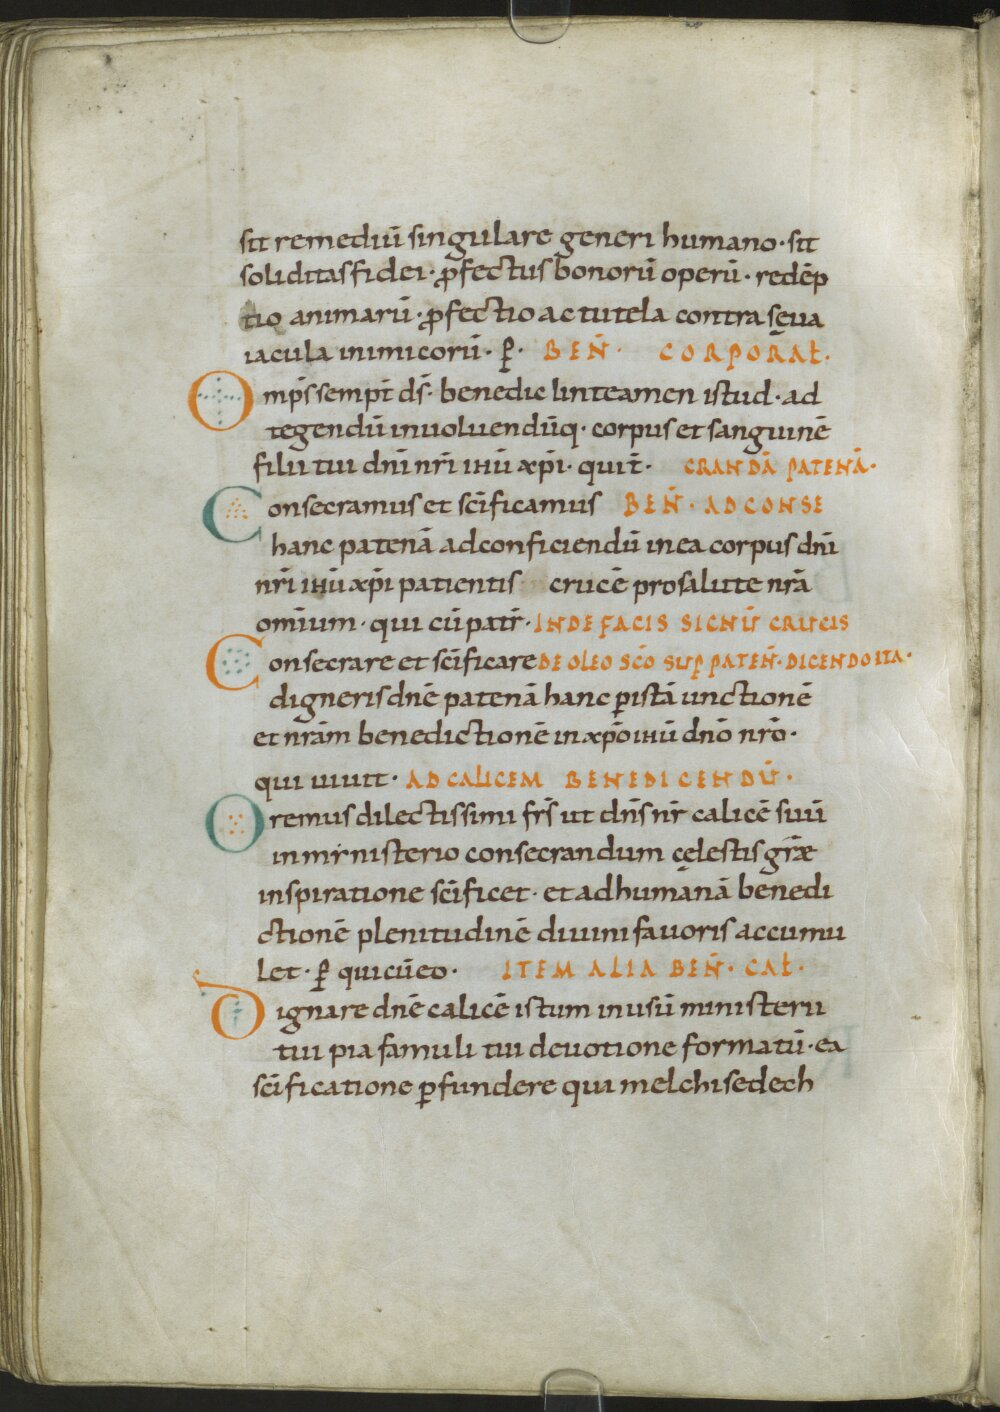 sit remediū singulare generi humano · sit
soliditas fidei · ꝓfectus bonorū operū · redēp
tio animarū · ꝓfectio ac tutela contra sęva
iacula inimicorū · ꝑ · BEN̄ · CORPORAŁ ·
Omp̄s sempt̄ ds̄ · benedic linteamen istud · ad
tegendū inuoluendūq · corpus et sanguinē
filii tui dn̄i nr̄i ihū xp̄i · qui t̄ · CRANDĀ PATENĀ ·
Consecramus et sc̄ificamus BEN̄ · AD CONSE
hanc patenā ad conficiendū in ea corpus dn̄i
nr̄i ihū xp̄i patientis crucē pro salute nr̄a
omīum · qui cū patr̄ · INDE FACIS SIGNŪ CRUCIS
Consecrare et sc̄ificare DE OLEO SC̄O SUP̱ PATEN̄ · DICENDO ITA ·
digneris dn̄e patenā hanc ꝑ istā unctionē
et nr̄am benedictionē in xp̄o ihū dn̄o nr̄o ·
qui uiuit · AD CALICEM BENEDICENDŪ ·
Oremus dilectissimi fr̄s ut dn̄s nr̄ calicē suū
in ministerio consecrandum cęlestis gr̄æ
inspiratione sc̄ificet · et ad humanā benedi
ctionē plenitudinē diuini fauoris accumu
let · ꝑ qui cū eo · ITEM ALIA BEN̄ · CAŁ ·
Dignare dn̄e calicē istum in usū ministerii
tui pia famuli tui deuotione formatū · ea
sc̄ificatione ꝑfundere qui melchisedech